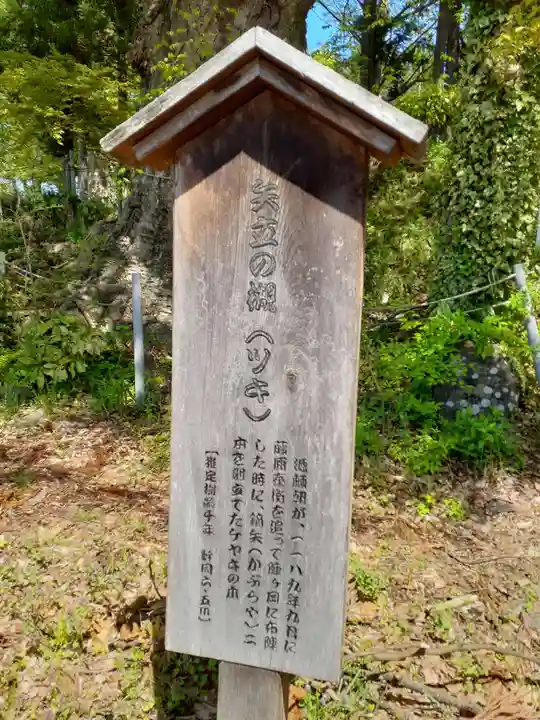 矢立の槻（ツキ）
源頼朝が、一一八九年九月に
藤原泰衡を追って陣ヶ岡に布陣
した時に、鏑矢（かぶらや）二
本を射立てたケヤキの木
【推定樹齢千年　幹周六・五m】